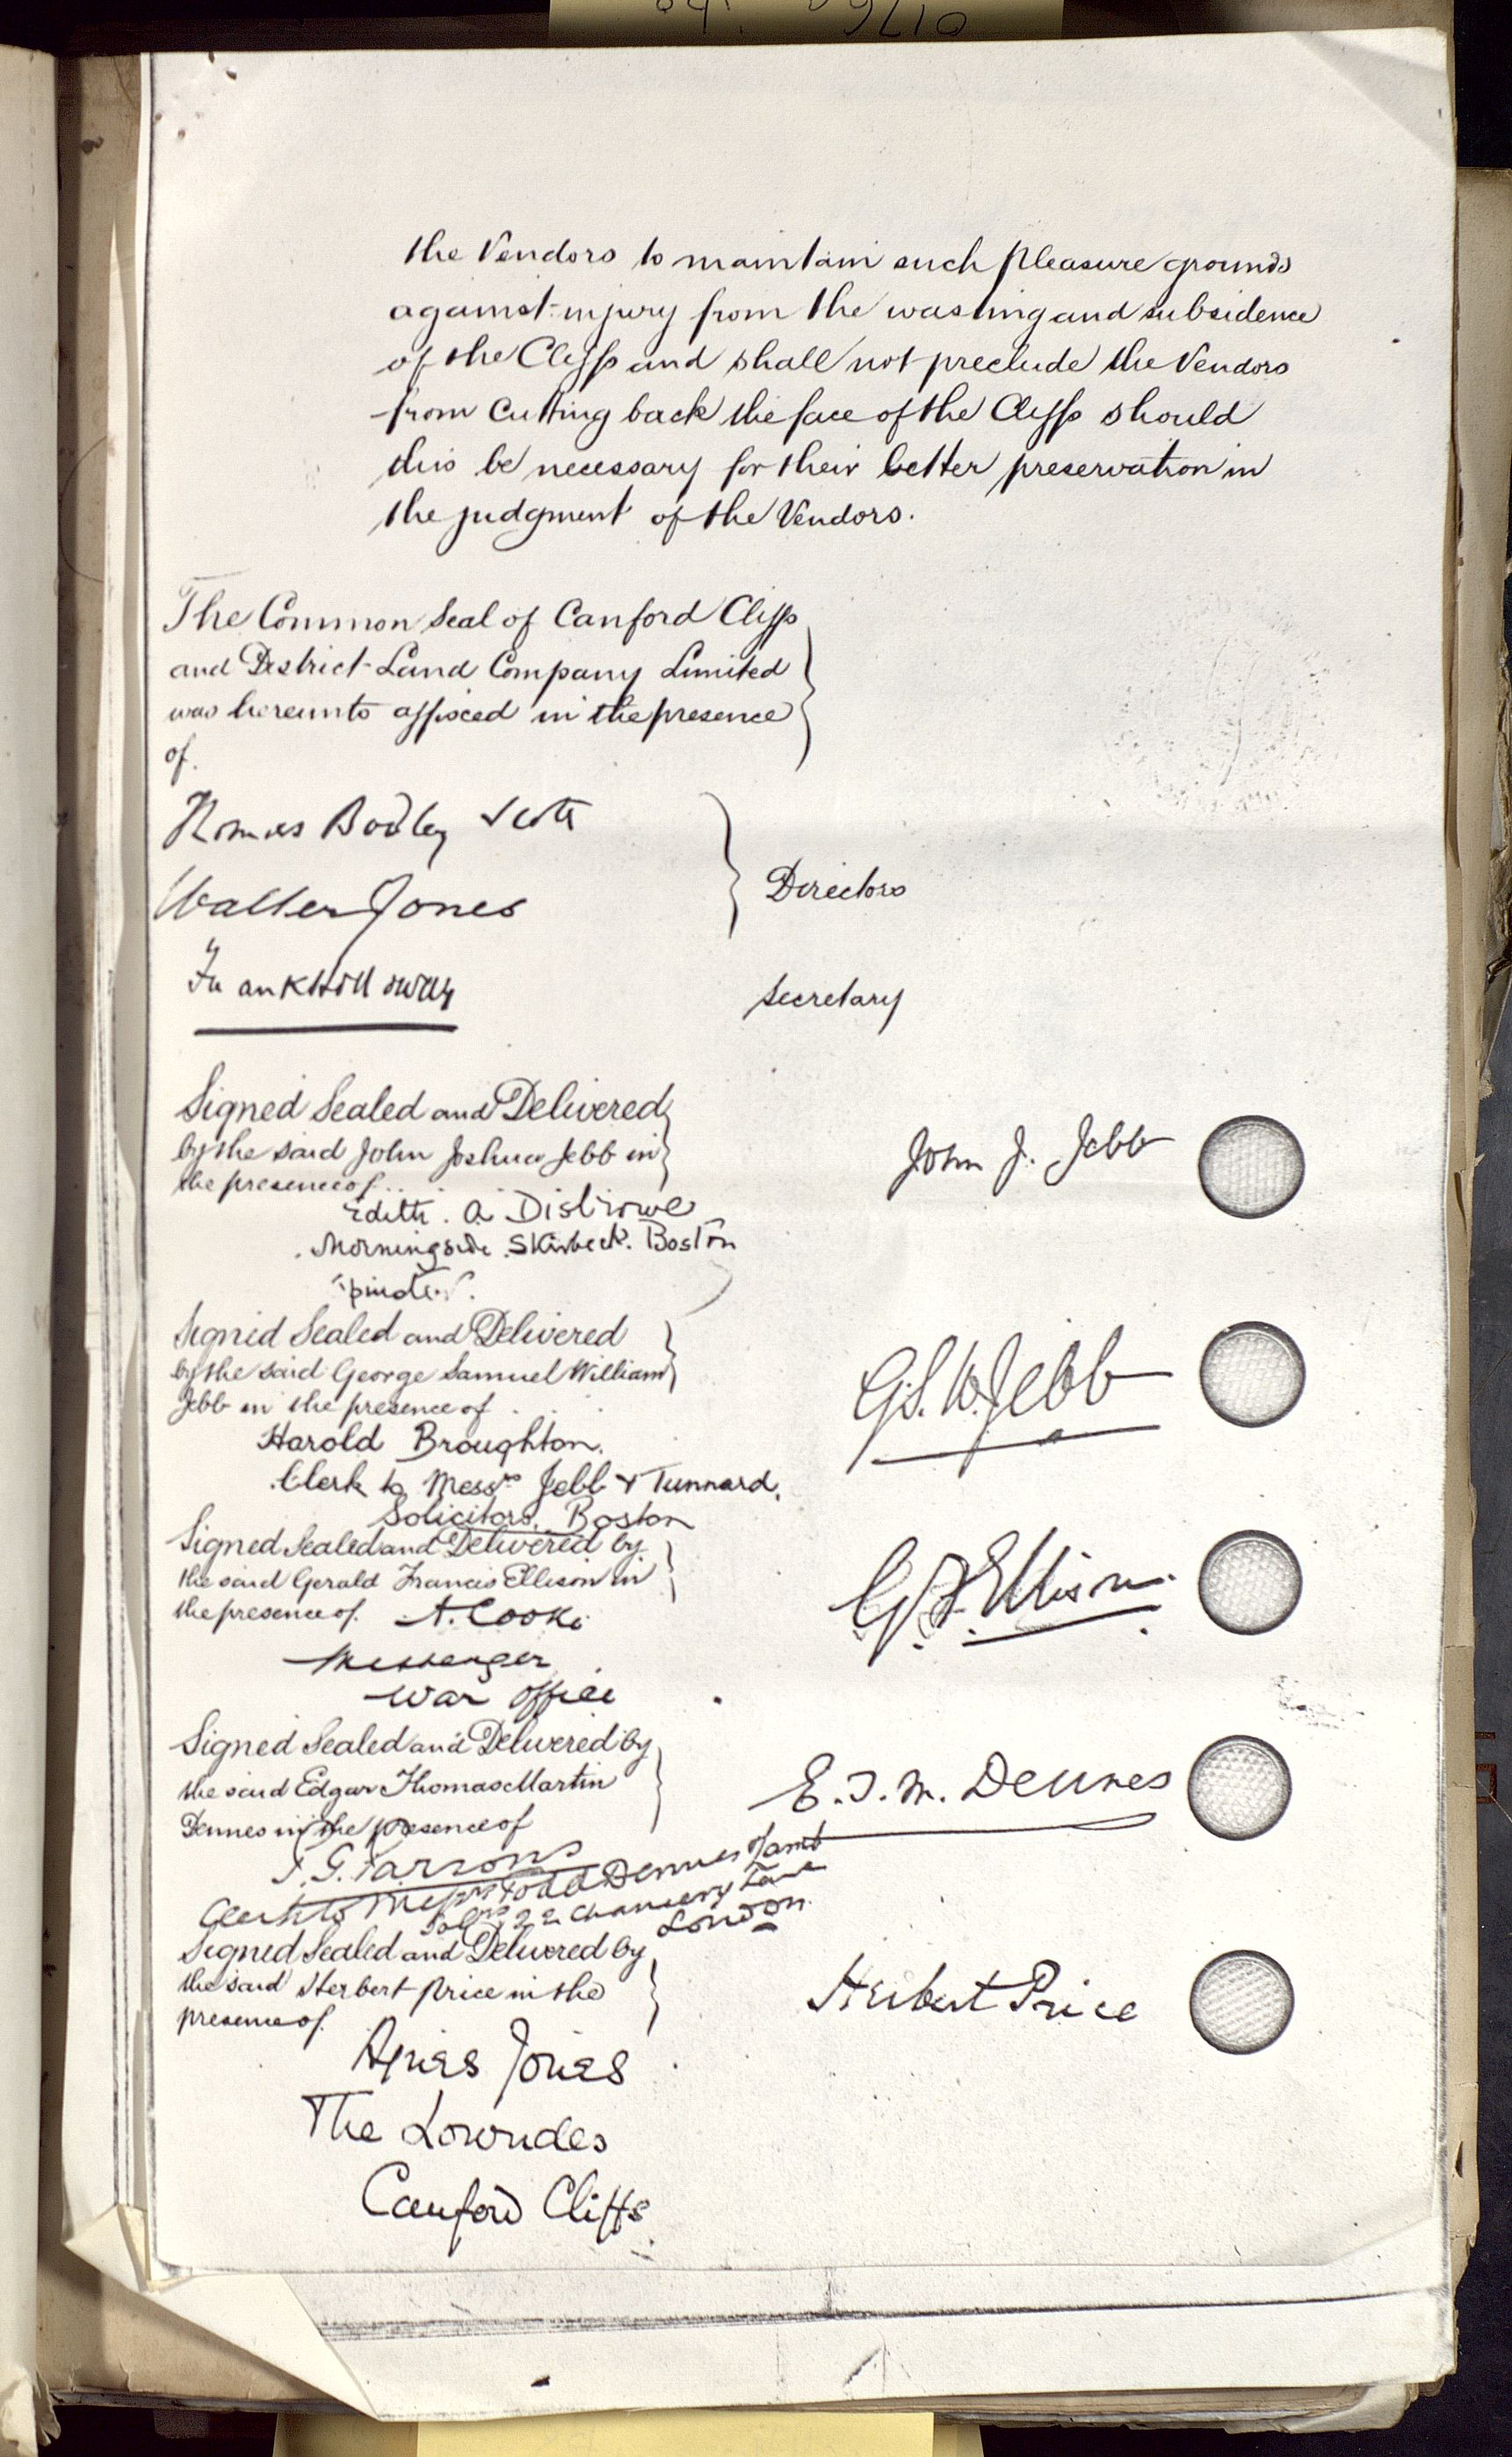 the Vendors to maintain such pleasure grounds
against injury from the wasting and subsidence
of the Cliffs and shall not preclude the Vendors
from cutting back the face of the Cliffs should
this be necessary for their better preservation in
the judgment of the Vendors.
The Common Seal of Canford Cliffs
and District Land Company Limited
was hereunto affixed in the presence
of.
Thomas Bodley Scott
Walter Jones
Directors
Secretary
Signed Sealed and Delivered
by the said John Joshua Jebb in
the presence of
John J. Jebb
Edith. A
Morningside. Skirbeck. Boston
Signed Sealed and Delivered
by the said George Samuel William
Jebb in the presence of
G.S.W. Jebb
Harold Broughton.
Clerk to Messrs Jebb & Tunnard.
Solicitors. Boston
Signed Sealed and Delivered by
the said Gerald Francis Ellison in
the presence of.
A. Cooke
G. F. Ellison
Messenger
War Office
Signed Sealed and Delivered by
the said Edgar Thomas Martin
Dennes in the presence of
E. T. M. Dennes
T. G. Parsons
Clerk to Messrs Todd Dennes & Lamb
Solrs 22 Chancery Lane
London.
Signed Sealed and Delivered by
the said Herbert Price in the
presence of.
Herbert Price
Agnes Jones
The Lowndes
Canford Cliffs